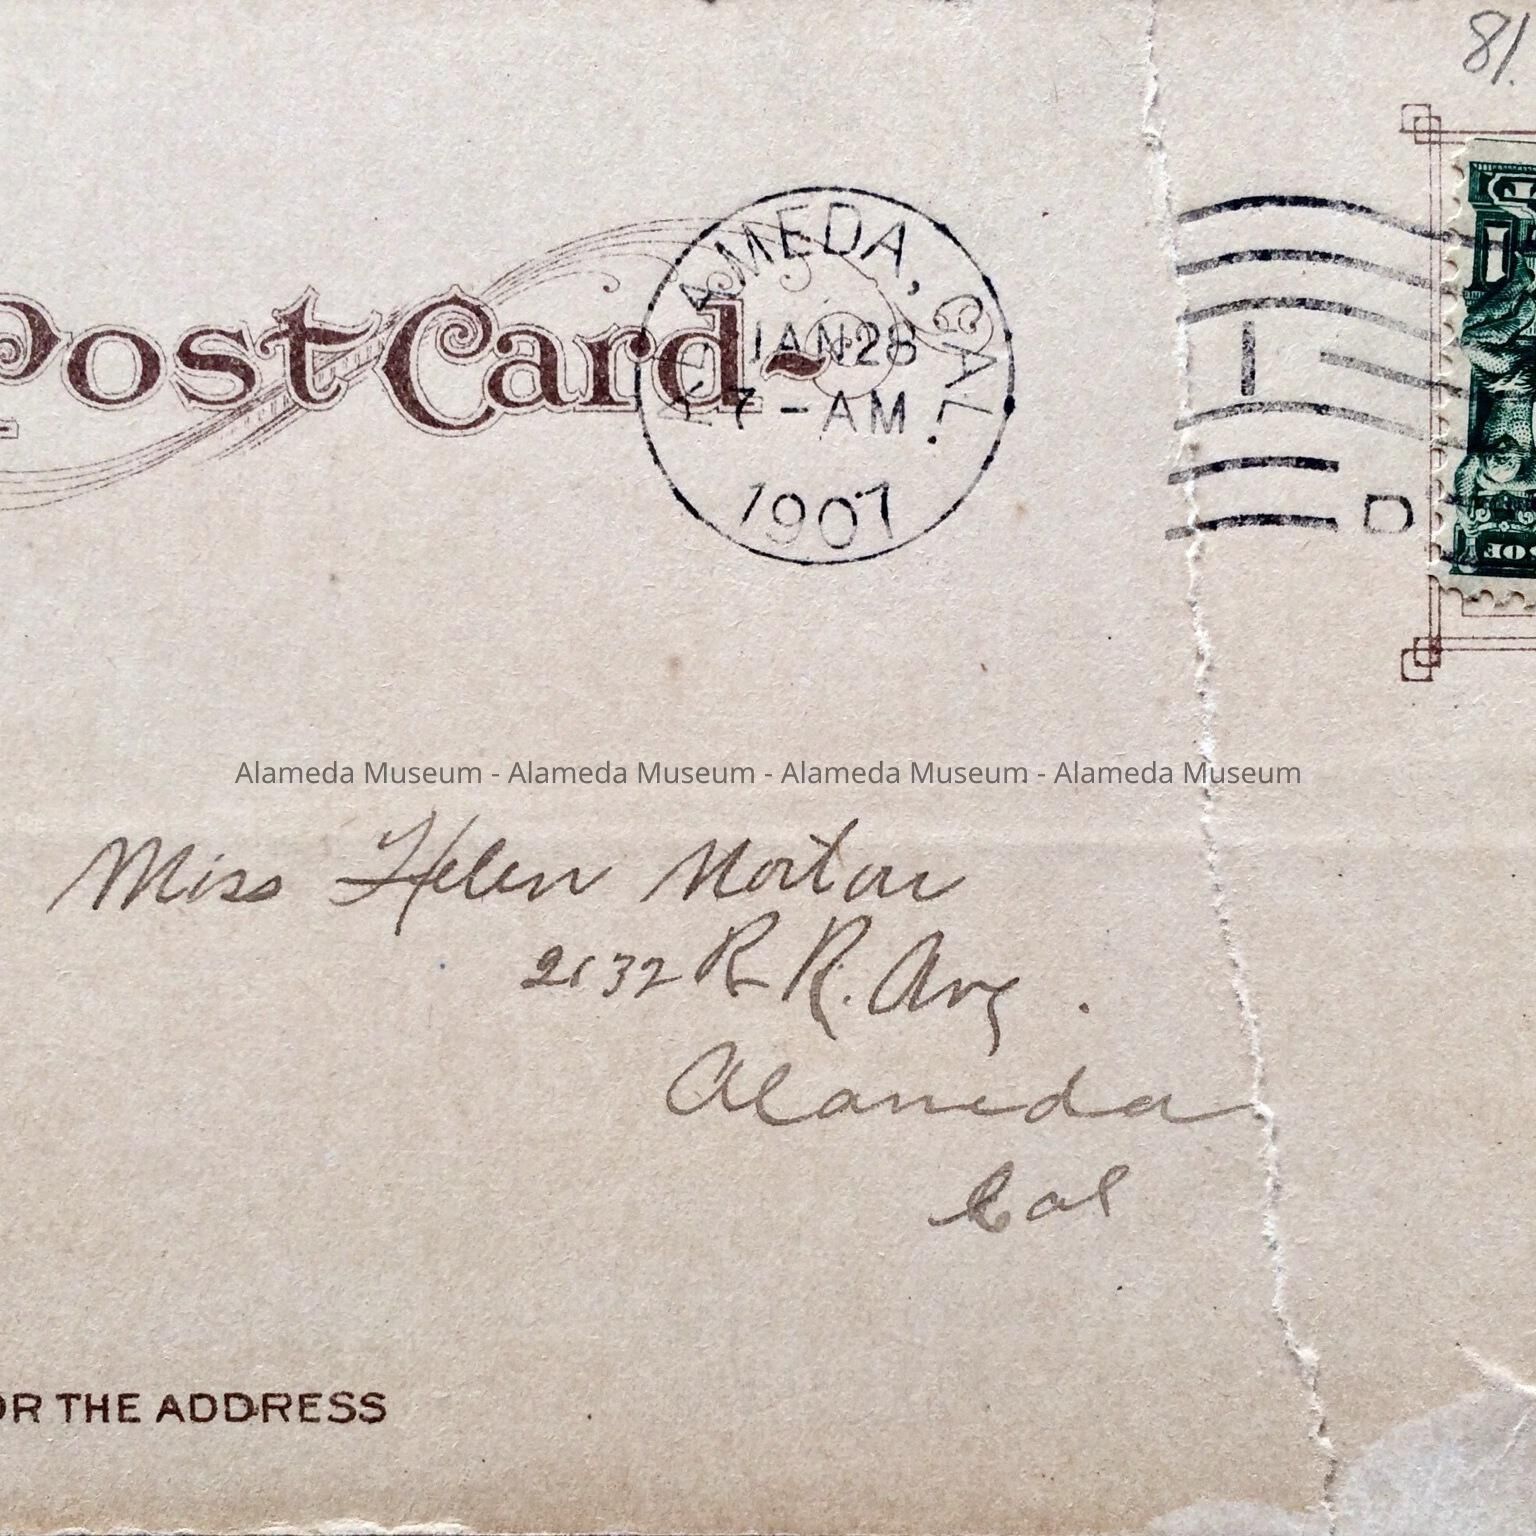 81.
Post Card
ALAMEDA, CAL.
JAN 28
7-AM
1907
D
Alameda Museum - Alameda Museum - Alameda Museum - Alameda Museum
Miss Helen Norton
2132 R R. Ave.
Alameda
Cal
OR THE ADDRESS